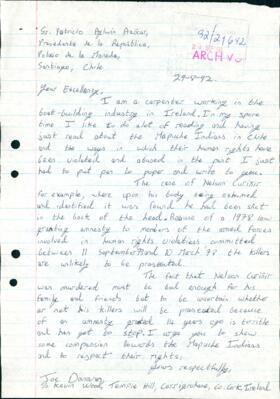 Sr. Patricio Aylwin Azócar,
Presidente de la República,
Palacio de la Moneda,
Santiago, Chile
92/21642
ARCHIVO
29-8-92.
Your Excellency,
I am a carpenter working in the
boat-building industry in Ireland. In my spare
time I like to do a lot of reading and having
just read about the Mapuche Indians in Chile
and the ways in which their human rights have
been violated and abused in the past I just
had to put pen to paper and write to you.
The case of Nelson Curiñir
for example, where upon his body being exhumed
and identified it was found he had been shot
in the back of the head. Because of a 1978 law
granting amnesty to members of the armed forces
involved in human rights violations committed
between 11 September and 10 March 78 the killers
are unlikely to be prosecuted.
The fact that Nelson Curiñir
was murdered must be bad enough for his
family and friends but to be uncertain whether
or not his killers will be prosecuted because
of an amnesty 14 years ago is terrible
and has got to stop. I urge you to show
some compassion towards the Mapuche Indians
and to respect their rights.
Yours respectfully,
Joe
Kevin Wood, Temple Hill, Carrigrohane, Co Cork, Ireland